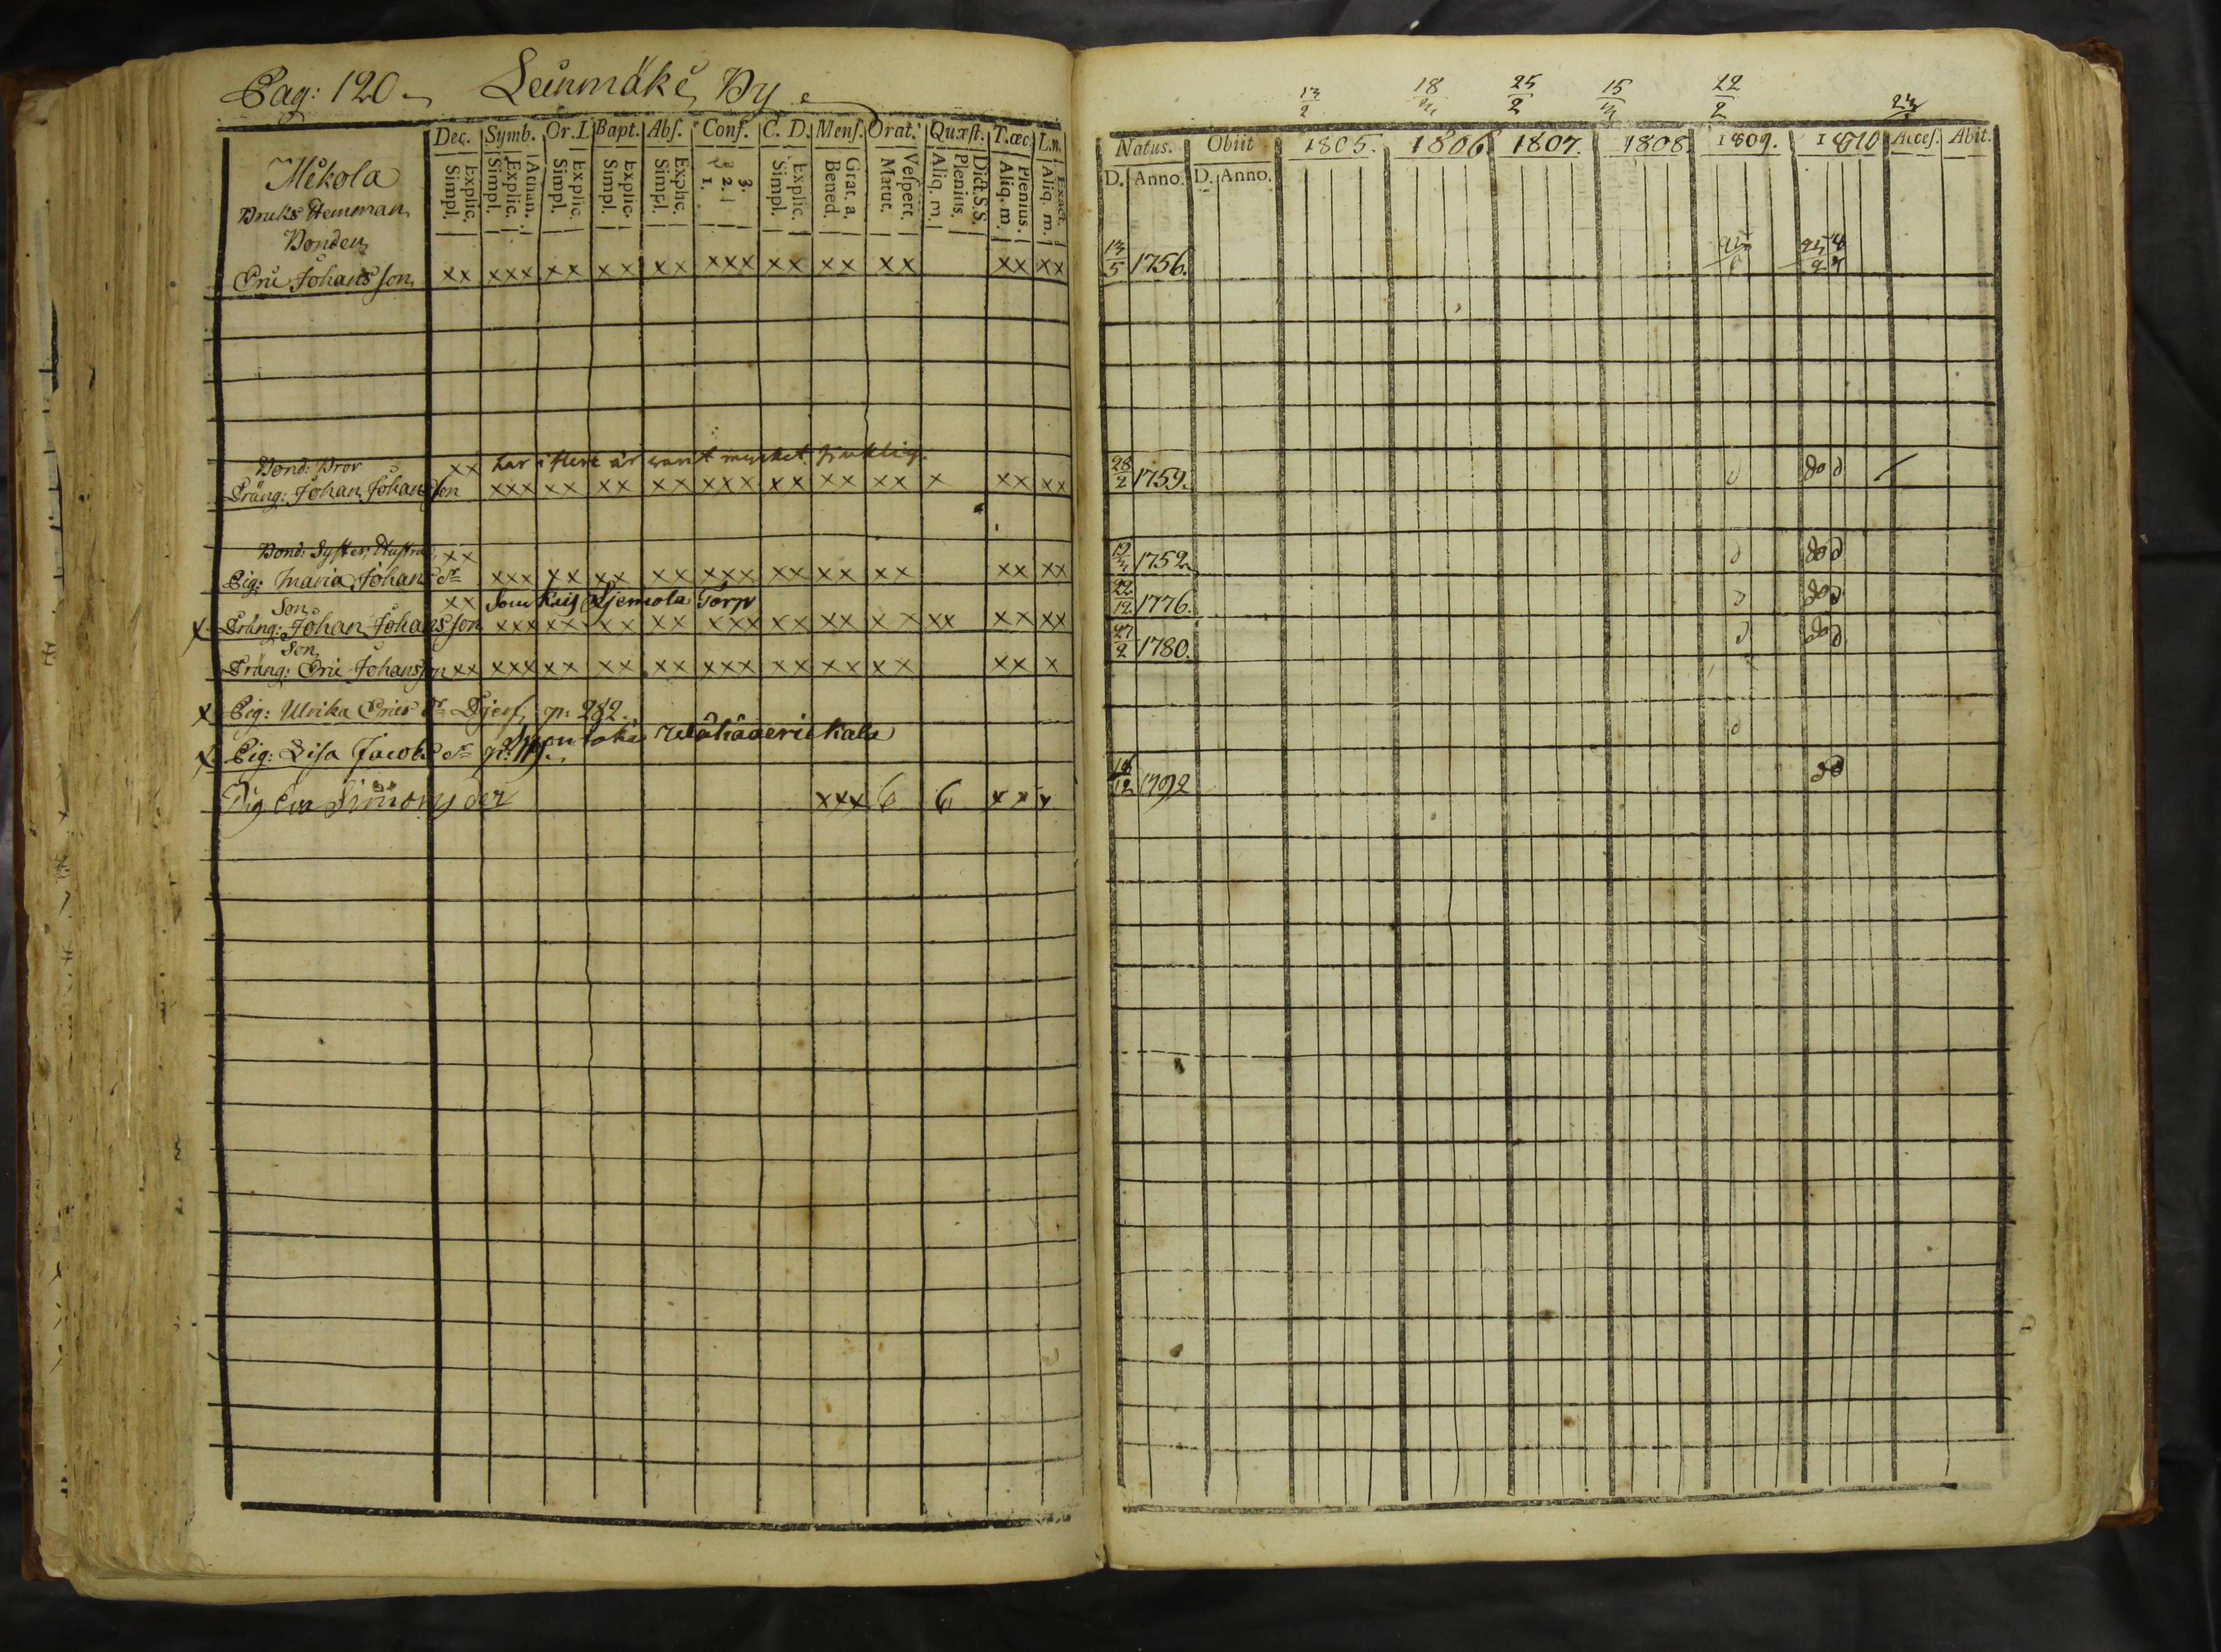 Pag: 120
Leinmäki By
Dec. Symb. Or. D. Bapt. Abs. Conf. C. D. Menſ. Orat. Quæſt. T. œc. L.n.
Explic. Simpl. Athan. Explic. Simpl. Explic. Simpl. Explic. Simpl. Explic. Simpl. 3. 2. 1. Explic. Simpl. Grat. a. Bened. Veſpert. Matut. Dict.S.S. Plenius. Aliq. m. Plenius. Aliq. m. Exact. Aliq. m.
Mikola
Bruks Hemman
Bonden
Eric Johansson xx xxx xx xx xx xxx xx xx xx xx xx
Bond: Bror xx har i flere år varit mycket sjuklig.
Dräng: Johan Johansson xxx xx xx xx xxx xx xx xx x xx xx
Bond: Syster, Hustru xx
Pig: Maria Johans dr xxx xx xx xx xxx xx xx xx xx xx
Son xx
x Dräng: Johan Johansson xxx xx xx xx xxx xx xx xx xx xx xx
Son
Dräng: Eric Johansson xx xxx xx xx xx xxx xx xx xx xx x
x Pig: Ulrika Erics dr p: 282.
x Pig: Lisa Jacobs dr
Pig Eva Simons der xxx xxx
13/2 18 25/2 15 22/2
Natus. Obiit 1805. 1806 1807. 1808 1809. 1810 Acceſ. Abit.
D. Anno. D. Anno.
13/5 1756.
28/2 1759. do d
1752 do d
22/12 1776. do d
27/2 1780. do d
1792